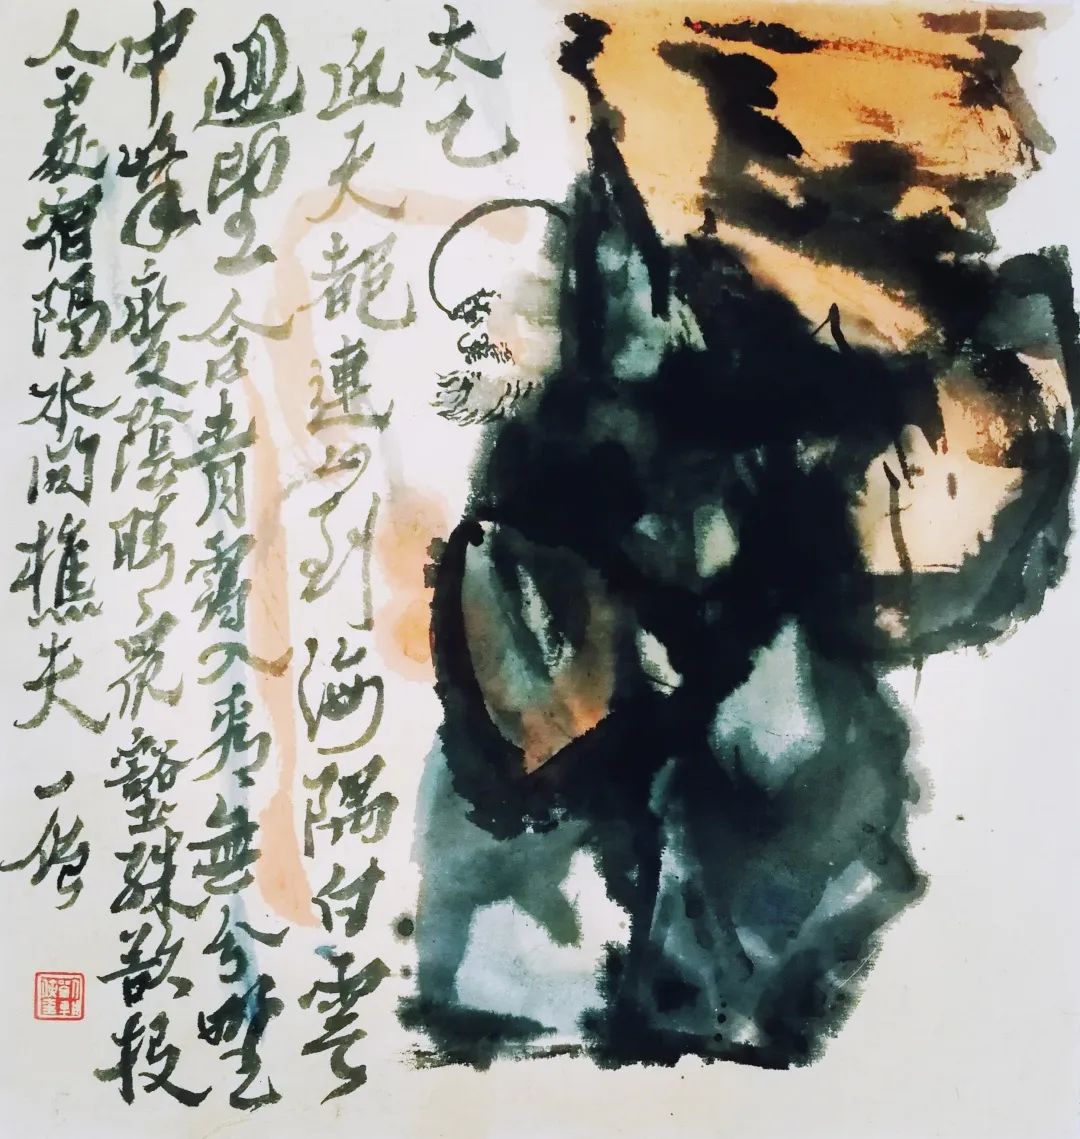 太乙
近天都連山到海隅白雲
迴望合青靄入看無分野
中峰變陰晴衆壑殊欲投
人處宿隔水問樵夫 一